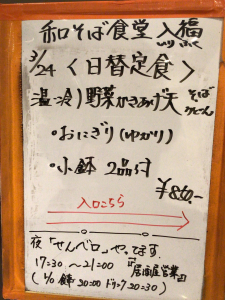 和そば食堂 入福
3/24 〈日替定食〉
温・冷 野菜かきあげ天 そば うどん
・おにぎり(ゆかり)
・小鉢 2品付
¥850-
入口こちら
夜 「せんベロ」やってます
17:30 ～21:00 居酒屋営業
(L/O 食事 20:00 ドリンク 20:30)